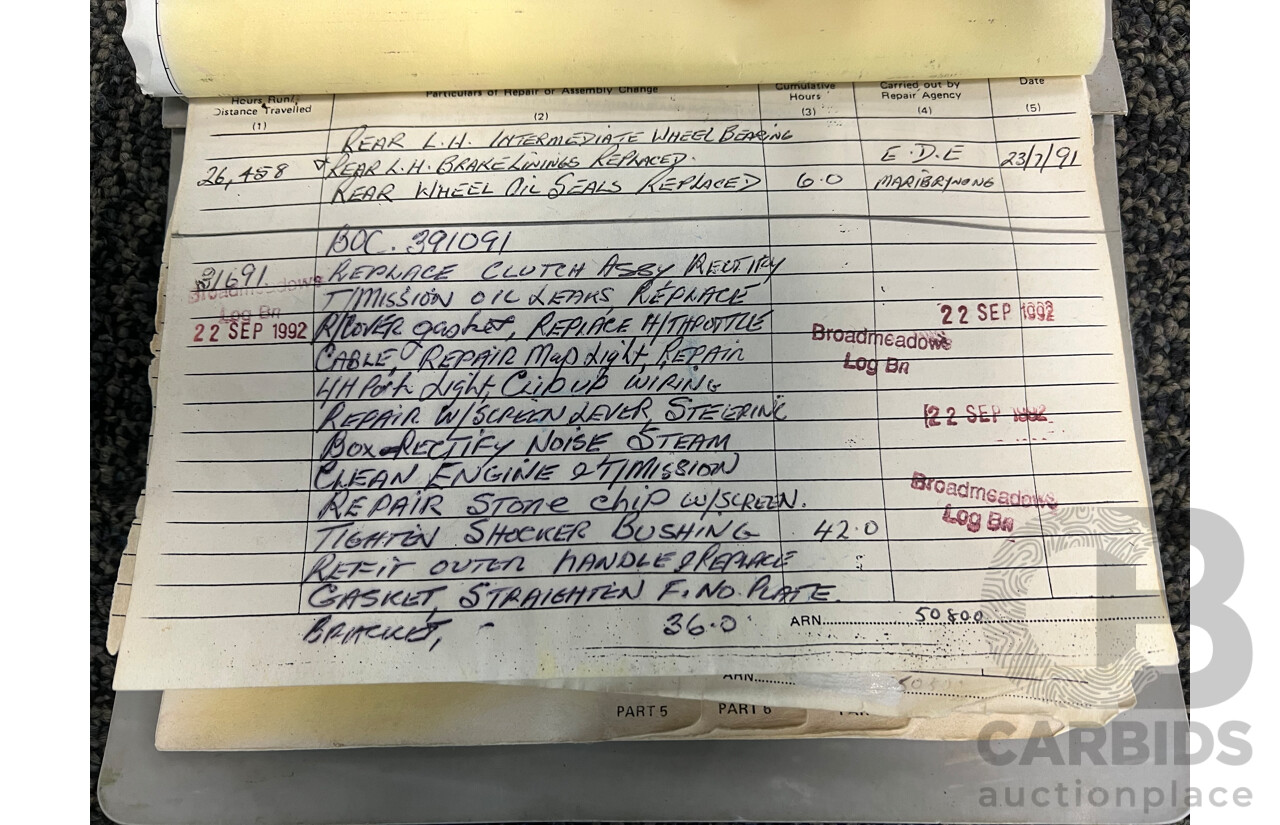 Hours Run/ Particulars of Repair or Assembly Change Cumulative Carried out by Date
Distance Travelled Hours Repair Agency
(1) (2) (3) (4) (5)
REAR L.H. INTERMEDIATE WHEEL BEARING
26,458 REAR L.H. BRAKE LININGS REPLACED. E.D.E 23/7/91
REAR WHEEL OIL SEALS REPLACED 6.0 MARIBRYNONG
BOC. 391091
31691 REPLACE CLUTCH ASSY RECTIFY
Broadmeadows T/MISSION OIL LEAKS REPLACE
Log Bn 22 SEP 1992
22 SEP 1992 R/COVER gasket, REPLACE H/THROTTLE Broadmeadows
CABLE, REPAIR Map Light, REPAIR Log Bn
Park Light, Clip up WIRING
REPAIR W/SCREEN LEVER, STEERING 22 SEP 1992
BOX RECTIFY NOISE STEAM
CLEAN ENGINE & T/MISSION
REPAIR Stone chip W/SCREEN. Broadmeadows
TIGHTEN SHOCKER BUSHING 42.0 Log Bn
REFIT OUTER HANDLE & REPLACE
GASKET, STRAIGHTEN F. NO. PLATE.
BRACKET, - 36.0 ARN 50800
ARN
PART 5 PART 6
CARBIDS
auctionplace